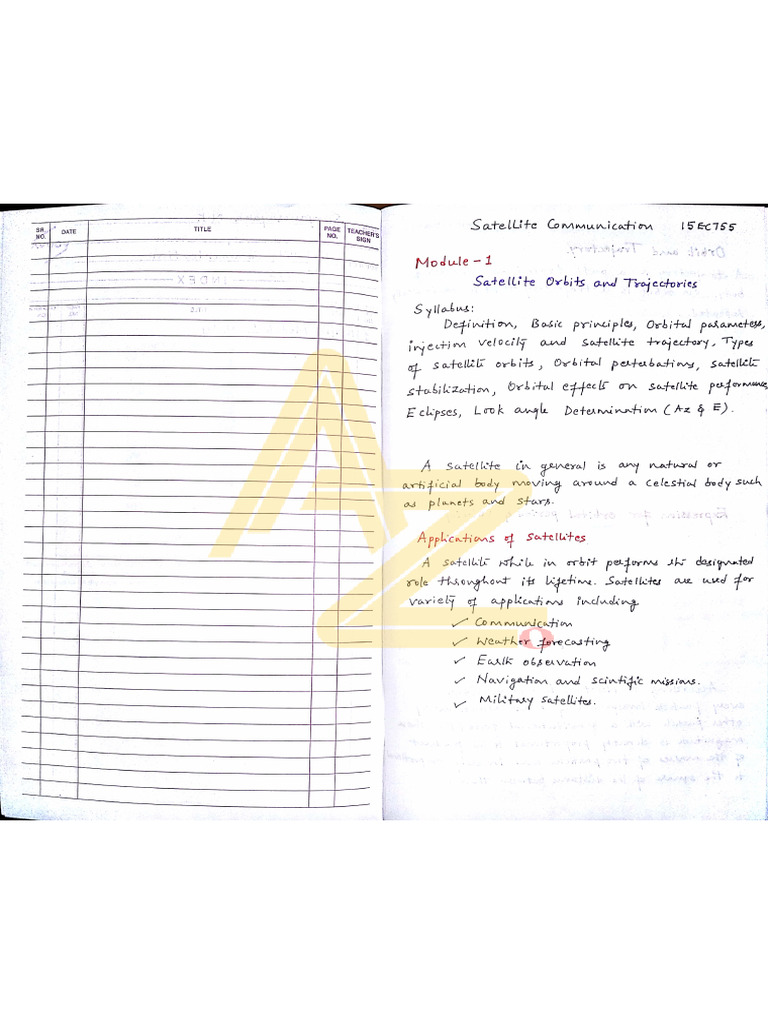 SR. NO. DATE TITLE PAGE NO. TEACHER'S SIGN
Satellite Communication 15EC755
Module-1
Satellite Orbits and Trajectories
Syllabus:
Definition, Basic principles, Orbital parameters,
injection velocity and satellite trajectory, Types
of satellite orbits, Orbital perterbations, satellite
stabilization, Orbital effects on satellite performance,
Eclipses, Look angle Determination (Az & E).
A satellite in general is any natural or
artificial body moving around a celestial body such
as planets and stars.
Applications of satellites
A satellite while in orbit performs its designated
role throughout its lifetime. Satellites are used for
variety of applications including
✓ Communication
✓ Weather forecasting
✓ Earth observation
✓ Navigation and scintific missions.
✓ Military satellites.
AZ